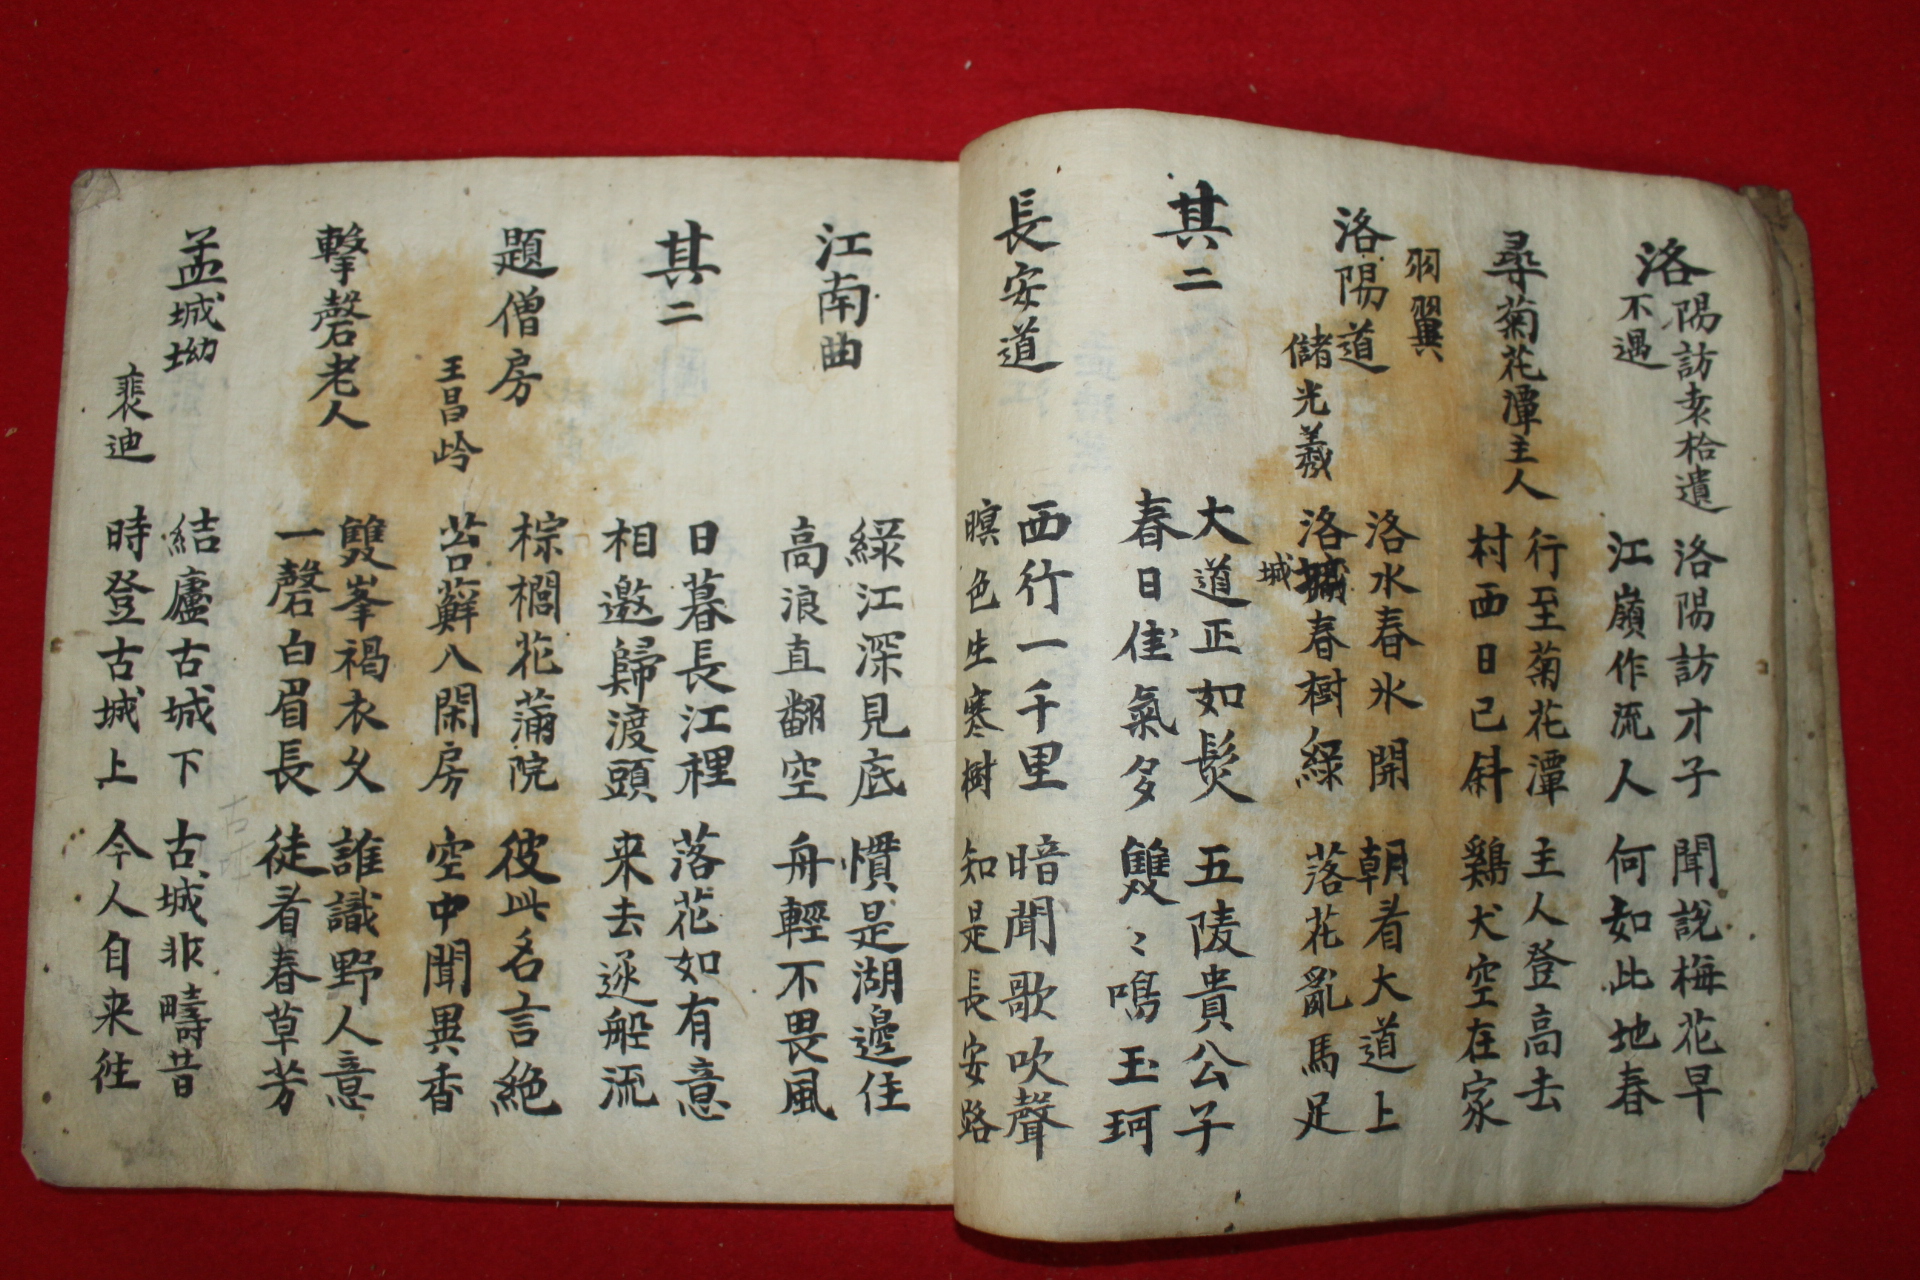 洛陽訪袁拾遺
不遇
洛陽訪才子 聞說梅花早
江嶺作流人 何如此地春
尋菊花潭主人
行至菊花潭 主人登高去
村西日已斜 鷄犬空在家
羽翼
洛陽道
儲光羲
洛水春氷開 朝看大道上
洛城春樹綠 落花亂馬足
城
其二
大道正如髮 五陵貴公子
春日佳氣多 雙〻鳴玉珂
長安道
西行一千里 暗聞歌吹聲
暝色生寒樹 知是長安路
江南曲
綠江深見底 慣是湖邊住
高浪直翻空 舟輕不畏風
其二
日暮長江裡 落花如有意
相邀歸渡頭 来去逐船流
題僧房
王昌岭
棕櫚花滿院 彼此名言絶
苔蘚入閑房 空中聞異香
擊磬老人
雙峯褐衣久 誰識野人意
一磬白眉長 徒看春草芳
孟城坳
裴迪
結廬古城下 古城非疇昔
時登古城上 今人自来往